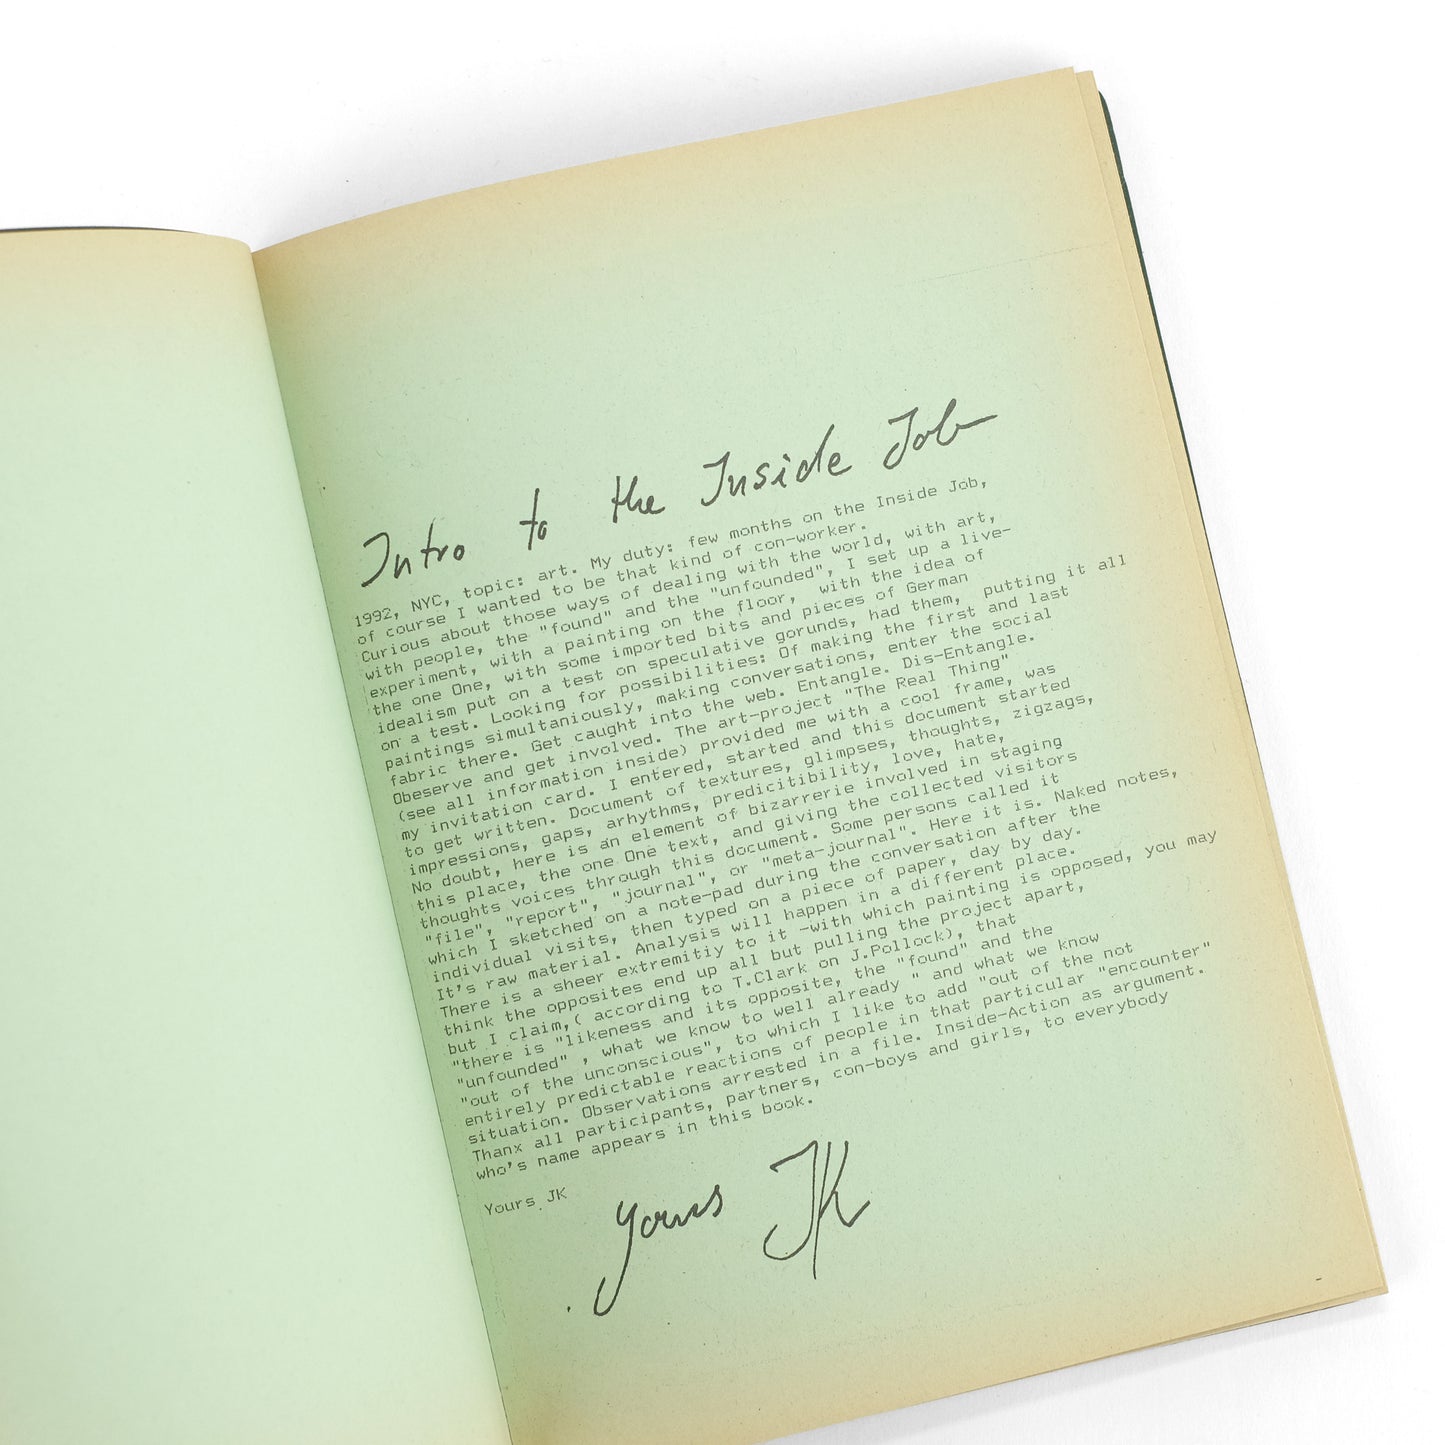 Intro to the Inside Job
1992, NYC, topic: art. My duty: few months on the Inside Job,
of course I wanted to be that kind of con-worker.
Curious about those ways of dealing with the world, with art,
with people, the "found" and the "unfounded", I set up a live-
experiment, with a painting on the floor, with the idea of
the one One, with some imported bits and pieces of German
idealism put on a test on speculative gorunds, had them, putting it all
on a test. Looking for possibilities: Of making the first and last
paintings simultaniously, making conversations, enter the social
fabric there. Get caught into the web. Entangle. Dis-Entangle.
Obeserve and get involved. The art-project "The Real Thing"
(see all information inside) provided me with a cool frame, was
my invitation card. I entered, started and this document started
to get written. Document of textures, glimpses, thoughts, zigzags,
impressions, gaps, arhythms, predicitibility, love, hate,
No doubt, here is an element of bizarrerie involved in staging
this place, the one One text, and giving the collected visitors
thoughts voices through this document. Some persons called it
"file", "report", "journal", or "meta-journal". Here it is. Naked notes,
which I sketched on a note-pad during the conversation after the
individual visits, then typed on a piece of paper, day by day.
It's raw material. Analysis will happen in a different place.
There is a sheer extremitiy to it -with which painting is opposed, you may
think the opposites end up all but pulling the project apart,
but I claim,( according to T.Clark on J.Pollock), that
"there is "likeness and its opposite, the "found" and the
"unfounded" , what we know to well already " and what we know
"out of the unconscious", to which I like to add "out of the not
entirely predictable reactions of people in that particular "encounter"
situation. Observations arrested in a file. Inside-Action as argument.
Thanx all participants, partners, con-boys and girls, to everybody
who's name appears in this book.
Yours JK
yours JK